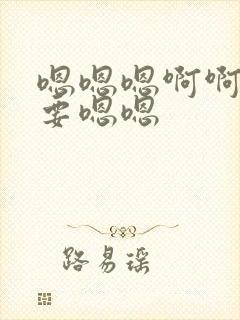 嗯嗯嗯啊啊
要嗯嗯
路易瑶